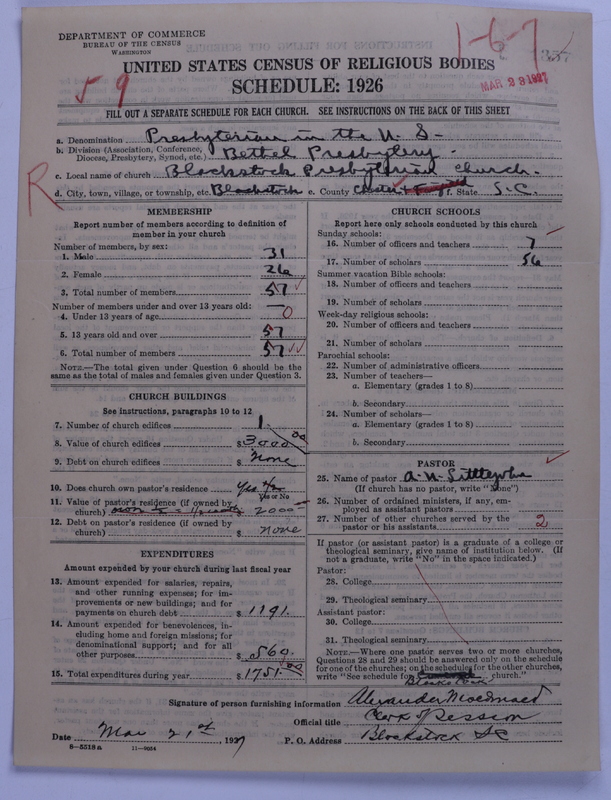 DEPARTMENT OF COMMERCE
BUREAU OF THE CENSUS
WASHINGTON
1-6-7
59
MAR 28 1927
UNITED STATES CENSUS OF RELIGIOUS BODIES
SCHEDULE: 1926
FILL OUT A SEPARATE SCHEDULE FOR EACH CHURCH. SEE INSTRUCTIONS ON THE BACK OF THIS SHEET
a. Denomination Presbyterian in the U. S-
b. Division (Association, Conference, Diocese, Presbytery, Synod, etc.) Bethel Presbytery.
c. Local name of church Blackstock Presbyterian church.
R
d. City, town, village, or township, etc. Blackstock e. County Chester State S.C.
MEMBERSHIP
Report number of members according to definition of
member in your church
Number of members, by sex:
1. Male 31
2. Female 26
3. Total number of members 57
Number of members under and over 13 years old:
4. Under 13 years of age 0
5. 13 years old and over 57
6. Total number of members 57
NOTE.—The total given under Question 6 should be the
same as the total of males and females given under Question 3.
CHURCH BUILDINGS
See instructions, paragraphs 10 to 12
7. Number of church edifices 1
8. Value of church edifices $3000.00
9. Debt on church edifices $ None
10. Does church own pastor's residence Yes
Yes or No
11. Value of pastor's residence (if owned by
church) 2000
12. Debt on pastor's residence (if owned by
church) $ none
EXPENDITURES
Amount expended by your church during last fiscal year
13. Amount expended for salaries, repairs,
and other running expenses; for im-
provements or new buildings; and for
payments on church debt $ 1191.
14. Amount expended for benevolences, in-
cluding home and foreign missions; for
denominational support; and for all
other purposes $ 560.
15. Total expenditures during year $1751.00
CHURCH SCHOOLS
Report here only schools conducted by this church
Sunday schools:
16. Number of officers and teachers 7
17. Number of scholars 56
Summer vacation Bible schools:
18. Number of officers and teachers
19. Number of scholars
Week-day religious schools:
20. Number of officers and teachers
21. Number of scholars
Parochial schools:
22. Number of administrative officers
23. Number of teachers—
a. Elementary (grades 1 to 8)
b. Secondary
24. Number of scholars—
a. Elementary (grades 1 to 8)
b. Secondary
PASTOR
25. Name of pastor A. N. Littlejohn
(If church has no pastor, write "None")
26. Number of ordained ministers, if any, em-
ployed as assistant pastors
27. Number of other churches served by the
pastor or his assistants 2
If pastor (or assistant pastor) is a graduate of a college or
theological seminary, give name of institution below. (If
not a graduate, write "No" in the space indicated.)
Pastor:
28. College
29. Theological seminary
Assistant pastor:
30. College
31. Theological seminary
NOTE.—Where one pastor serves two or more churches,
Questions 28 and 29 should be answered only on the schedule
for one of the churches; on the schedules for the other churches,
write "See schedule for church."
Signature of person furnishing information Alexander Macdonald
Official title Clerk of Session
Date Mar 21st, 1927
P. O. Address Blackstock SC
8-5518a 11-9054